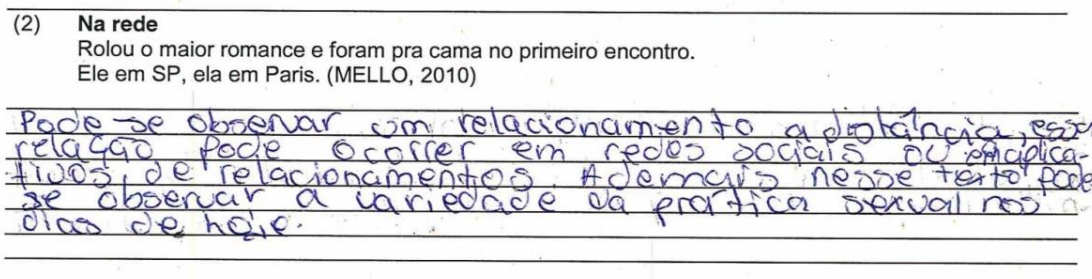 (2) Na rede
Rolou o maior romance e foram pra cama no primeiro encontro.
Ele em SP, ela em Paris. (MELLO, 2010)
Pode-se observar um relacionamento a distância, essa
relação pode ocorrer em redes sociais ou em aplica-
tivos de relacionamentos. Ademais nesse texto pode
se observar a variedade da prática sexual nos
dias de hoje.